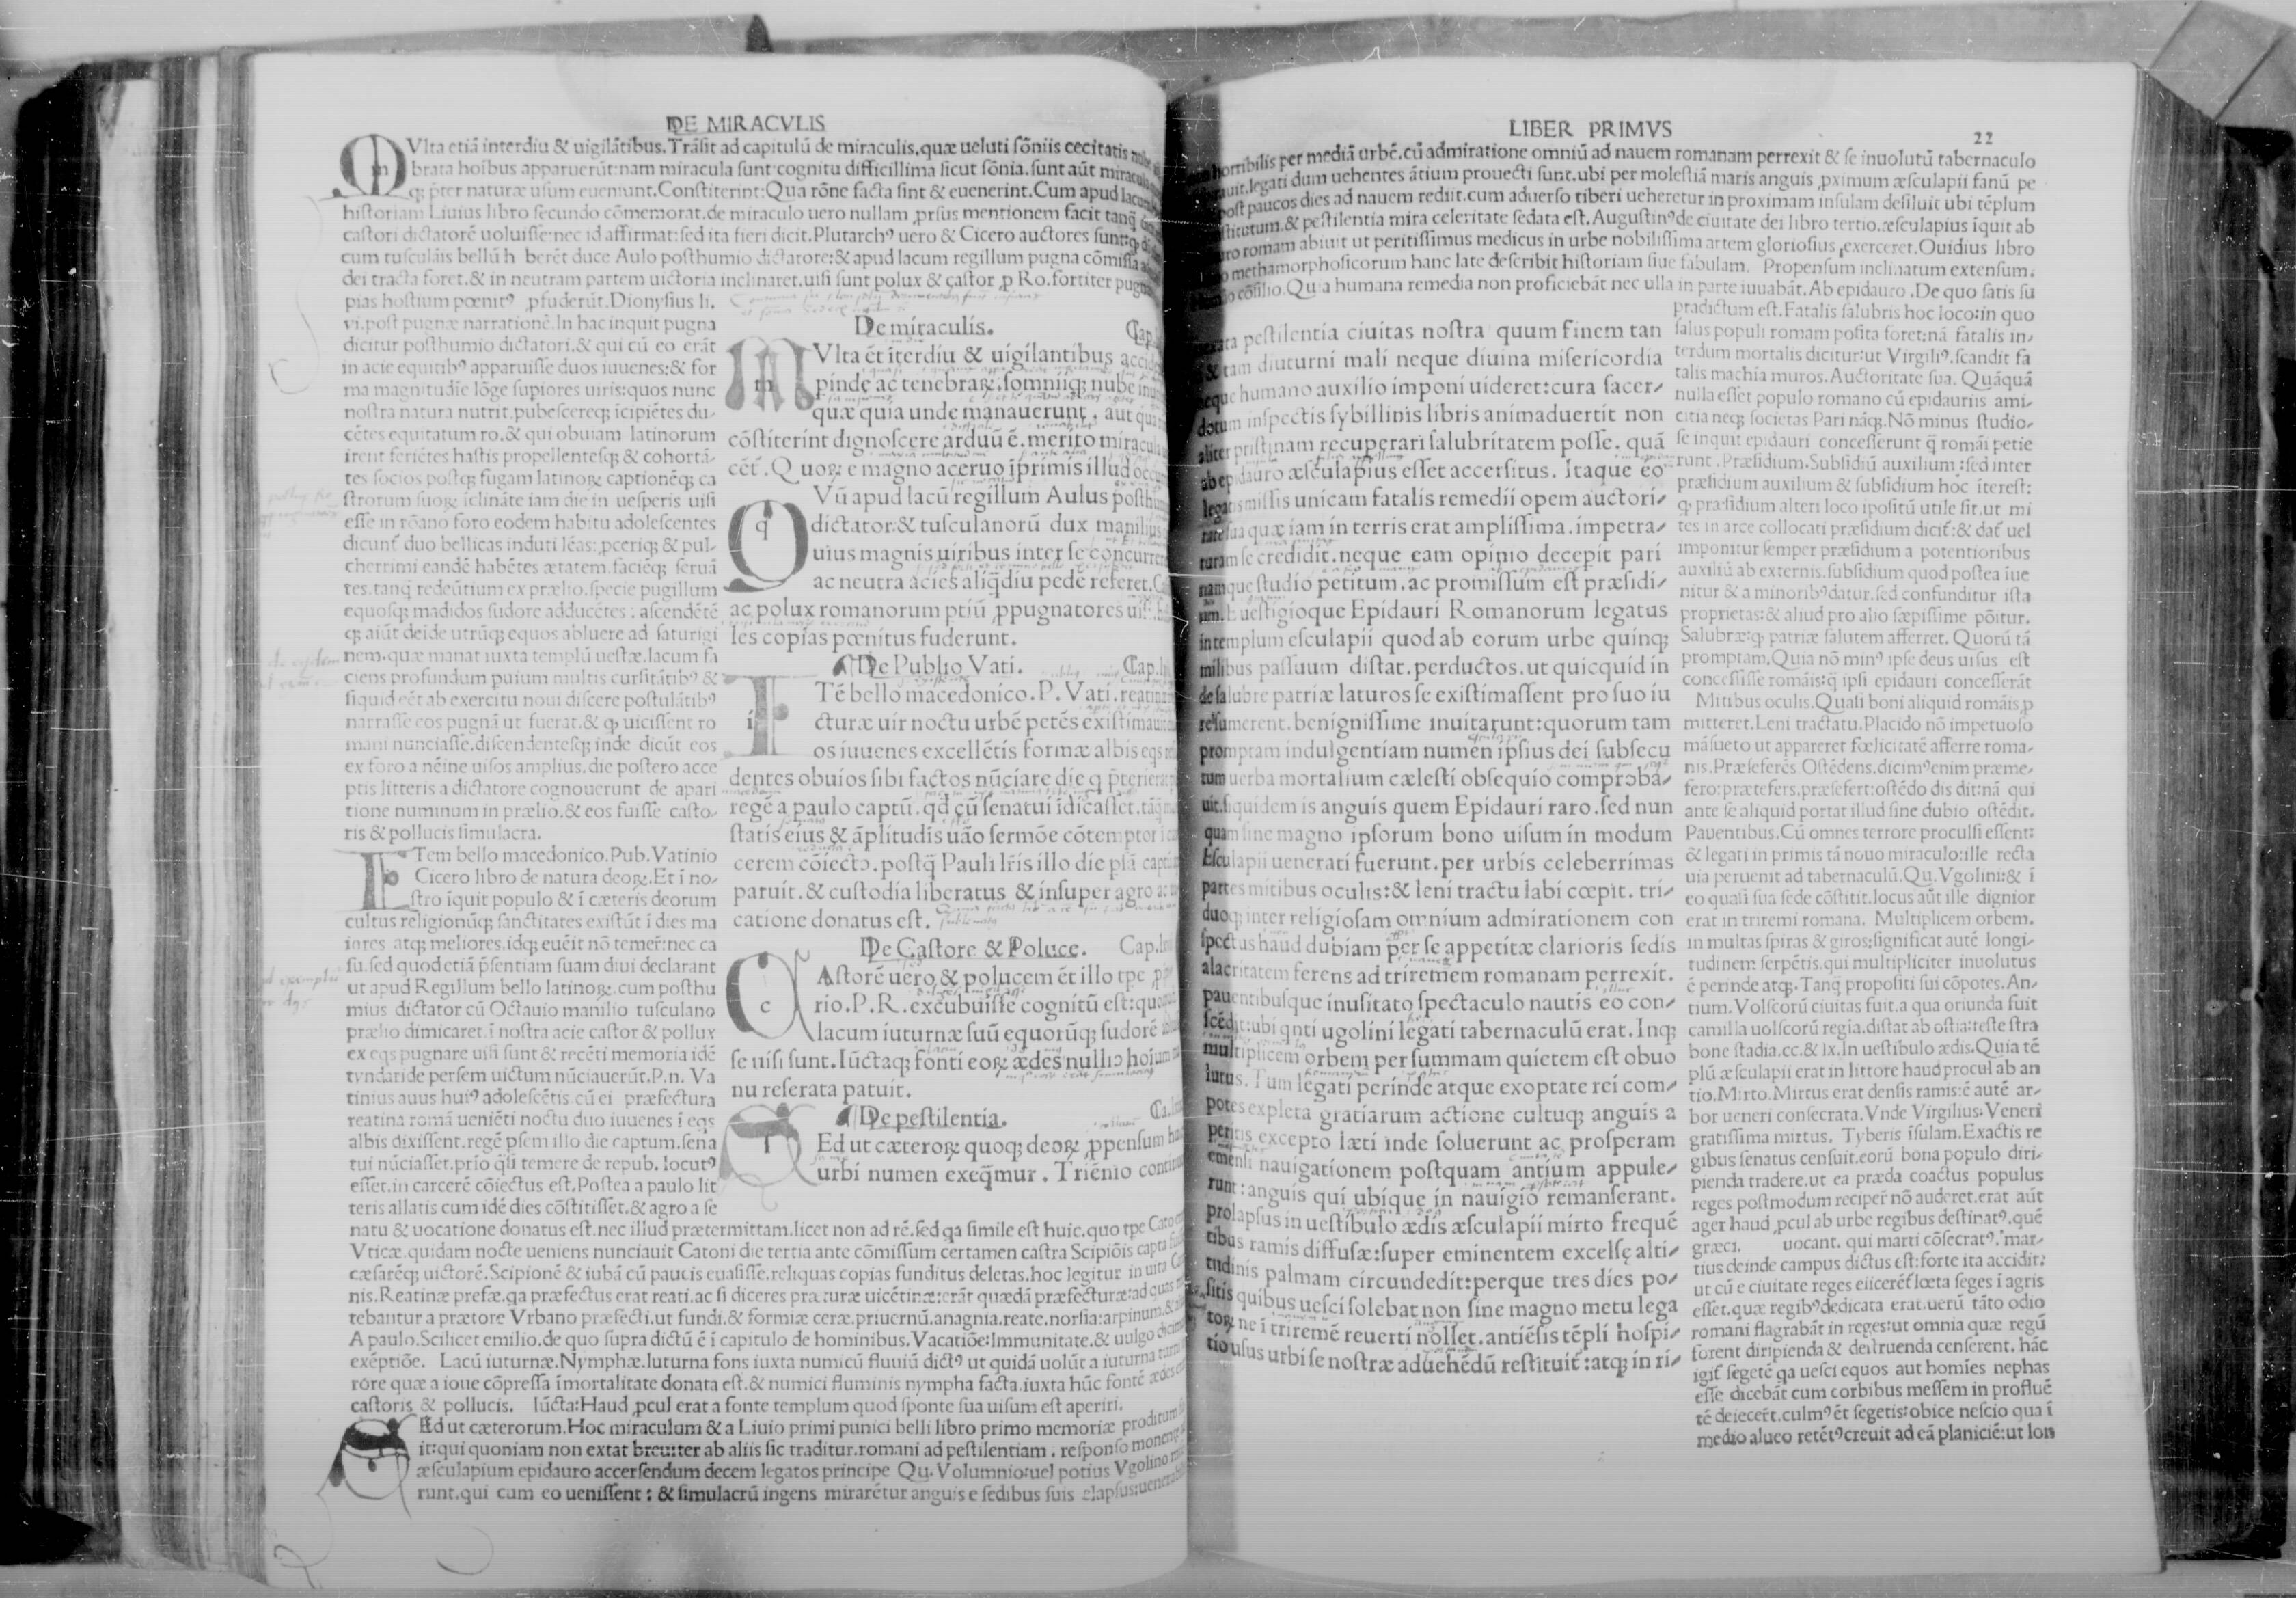 DE MIRACVLIS
MVlta etiā interdiu & uigilātibus. Trāsit ad capitulū de miraculis, quæ ueluti sōniis cecitatis
brata hoībus apparuerūt: nam miracula sunt cognitu difficillima sicut sōnia. sunt aūt miracula
q; p̄ter naturæ usum eueniunt. Constiterint: Qua rōne facta sint & euenerint. Cum apud lacum
historiam Liuius libro secundo cōmemorat. de miraculo uero nullam ꝓrsus mentionem facit tanq̄
castori dictatorē uoluisse: nec id affirmat: sed ita fieri dicit. Plutarchꝰ uero & Cicero auctores sunt: ꝙ
cum tusculāis bellū h berēt duce Aulo posthumio dictatore: & apud lacum regillum pugna cōmissa
dei tracta foret. & in neutram partem uictoria inclinaret. uisi sunt polux & castor ꝓ Ro. fortiter
pias hostium pœnitꝰ ꝓfuderūt. Dionysius li.
vi. post pugnæ narrationē. In hac inquit pugna
dicitur posthumio dictatori. & qui cū eo erāt
in acie equitibꝰ apparuisse duos iuuenes: & for
ma magnitudīe lōge supiores uiris: quos nunc
nostra natura nutrit. pubescereq; īcipiētes du-
cētes equitatum ro. & qui obuiam latinorum
irent feriētes hastis propellentesq; & cohortā-
tes socios postq̄; fugam latinoꝝ captionēq; ca
strorum suoꝝ īclināte iam die in uesperis uisi
esse in rōano foro eodem habitu adolescentes
dicunt̄ duo bellicas induti lēas: ꝓceriq; & pul-
cherrimi eandē habētes ætatem. faciēq; seruā
tes. tanq̄ redeūtium ex prælio. specie pugillum
equosq; madidos sudore adducētes: ascendētē
q; aiūt deide utrūq; equos abluere ad saturigi
nem. quæ manat iuxta templū uestæ. lacum fa
ciens profundum puium multis cursitātibꝰ &
siquid eēt ab exercitu noui discere postulātibꝰ
narrasse eos pugnā ut fuerat. & ꝙ uicissent ro
mani nunciasse. discendentesq; inde dicūt eos
ex foro a nēine uisos amplius. die postero acce
ptis litteris a dictatore cognouerunt de apari
tione numinum in prælio. & eos fuisse casto-
ris & pollucis simulacra.
ITem bello macedonico. Pub. Vatinio
Cicero libro de natura deoꝝ. Et ī no-
stro īquit populo & ī cæteris deorum
cultus religionūq; sanctitates existūt ī dies ma
iores atq; meliores. idq; euēit nō temer̄: nec ca
su. sed quod etiā p̄sentiam suam diui declarant
ut apud Regillum bello latinoꝝ. cum posthu
mius dictator cū Octauio manilio tusculano
prælio dimicaret. ī nostra acie castor & pollux
ex eqs pugnare uisi sunt & recēti memoria idē
tyndaride persem uictum nūciauerūt. P. n. Va
tinius auus huiꝰ adolescētis. cū ei præfectura
reatina romā ueniēti noctu duo iuuenes ī eqs
albis dixissent. regē psem illo die captum. sena
tui nūciasset. prīo q̄si temere de repub. locutꝰ
esset. in carcerē cōiectus est. Postea a paulo lit
teris allatis cum idē dies cōstitisset. & agro a se
natu & uocatione donatus est. nec illud prætermittam. licet non ad rē. sed qa simile est huic. quo tpe Cato
Vticæ. quidam nocte ueniens nunciauit Catoni die tertia ante cōmissum certamen castra Scipiōis capta
cæsarēq; uictorē. Scipionē & iubā cū paucis euasisse. reliquas copias funditus deletas. hoc legitur in uita
nis. Reatinæ prefæ. qa præfectus erat reati. ac si diceres præturæ uicētinæ: erāt quædā præfecturæ: ad quas
tebantur a prætore Vrbano præfecti. ut fundi. & formiæ ceræ. priuernū. anagnia. reate. norsia: arpinum.
A paulo. Scilicet emilio. de quo supra dictū ē ī capitulo de hominibus. Vacatiōe: Immunitate. & uulgo
exēptiōe. Lacū iuturnæ. Nymphæ. Iuturna fons iuxta numicū fluuiū dictꝰ ut quidā uolūt a iuturna
rore quæ a ioue cōpressa īmortalitate donata est. & numici fluminis nympha facta. iuxta hūc fontē ædes
castoris & pollucis. Iūcta: Haud ꝓcul erat a fonte templum quod sponte sua uisum est aperiri.
SEd ut cæterorum. Hoc miraculum & a Liuio primi punici belli libro primo memoriæ proditum
it: qui quoniam non extat breuiter ab aliis sic traditur. romani ad pestilentiam. responso
æsculapium epidauro accersendum decem legatos principe Qu. Volumnio: uel potius Vgolino
runt. qui cum eo uenissent: & simulacrū ingens mirarētur anguis e sedibus suis elapsus:
De miraculis. Cap.
m
MVlta ēt īterdiu & uigilantibus
pinde ac tenebraꝝ. somniiq; nube
quæ quia unde manauerunt. aut
cōstiterint dignoscere arduū ē. merito
cēt̄. Q uoꝝ e magno aceruo īprimis illud
q
QVū apud lacū regillum Aulus
dictator: & tusculanorū dux manilius
uiius magnis uiribus inter se
ac neutra acies aliq̄diu pedē referet.
ac polux romanorum ptiū ꝓpugnatores
les copias pœnitus fuderunt.
De Publio Vati. Cap.
i
ITē bello macedonico. P. Vati.
cturæ uir noctu urbē petēs
os iuuenes excellētis formæ albis
dentes obuios sibi factos nūciare die q
regē a paulo captū. qd cū senatui īdicasset.
statis eius & āplitudis uāo sermōe cōtemptor
cerem cōiecto. postq̄ Pauli lr̄is illo die
paruit. & custodia liberatus & insuper agro
catione donatus est.
De Castore & Poluce. Cap.
c
CAstorē uero & polucem ēt illo tpe
rio. P. R. excubuisse cognitū est:
lacum iuturnæ suū equorūq; sudorē
se uisi sunt. Iūctaq; fonti eoꝝ ædes nullio hoium
nu reserata patuit.
De pestilentia.
SEd ut cæteroꝝ quoq; deoꝝ ꝓpensum
urbi numen exeq̄mur. Triēnio
LIBER PRIMVS
22
horribilis per mediā urbē. cū admiratione omniū ad nauem romanam perrexit & se inuolutū tabernaculo
legati dum uehentes ātium prouecti sunt. ubi per molestiā maris anguis ꝓximum æsculapii fanū pe
post paucos dies ad nauem rediit. cum aduerso tiberi ueheretur in proximam insulam desiluit ubi tēplum
& pestilentia mira celeritate sedata est. Augustinꝰ de ciuitate dei libro tertio. æsculapius īquit ab
romam abiuit ut peritissimus medicus in urbe nobilissima artem gloriosius exerceret. Ouidius libro
methamorphosicorum hanc late describit historiam siue fabulam. Propensum inclinatum extensum.
cōsilio. Quia humana remedia non proficiebāt nec ulla in parte iuuabāt. Ab epidauro. De quo satis su
pestilentia ciuitas nostra quum finem tan
& tam diuturni mali neque diuina misericordia
humano auxilio imponi uideret: cura sacer-
dotum inspectis sybillinis libris animaduertit non
aliter pristinam recuperari salubritatem posse. quā
ab epidauro æsculapius esset accersitus. Itaque eo
legatis missis unicam fatalis remedii opem auctori-
tate sua quæ iam in terris erat amplissima. impetra-
turam se credidit. neque eam opinio decepit pari
namque studio petitum. ac promissum est præsidi-
um. E uestigioque Epidauri Romanorum legatus
in templum esculapii quod ab eorum urbe quinq;
milibus passuum distat. perductos. ut quicquid in
de salubre patriæ laturos se existimassent pro suo iu
re sumerent. benignissime inuitarunt: quorum tam
promptam indulgentiam numen ipsius dei subsecu
tum uerba mortalium cælesti obsequio comproba-
uit. siquidem is anguis quem Epidauri raro. sed nun
quam sine magno ipsorum bono uisum in modum
Esculapii uenerati fuerunt. per urbis celeberrimas
partes mitibus oculis: & leni tractu labi cœpit. tri-
duoq; inter religiosam omnium admirationem con
spectus haud dubiam per se appetitæ clarioris sedis
alacritatem ferens ad triremem romanam perrexit.
pauentibusque inusitato spectaculo nautis eo con-
scēdit: ubi qnti ugolini legati tabernaculū erat. Inq;
multiplicem orbem per summam quietem est obuo
lutus. Tum legati perinde atque exoptate rei com-
potes expleta gratiarum actione cultuq; anguis a
peritis excepto læti inde soluerunt ac prosperam
emensi nauigationem postquam antium appule-
runt: anguis qui ubique in nauigio remanserant.
prolapsus in uestibulo ædis æsculapii mirto frequē
tibus ramis diffusæ: super eminentem excelsę alti-
tudinis palmam circundedit: perque tres dies po-
sitis quibus uesci solebat non sine magno metu lega
toꝝ ne ī triremē reuerti nollet. antiēsis tēpli hospi-
tio usus urbi se nostræ aduehēdū restituit: atq; in ri-
pradictum est. Fatalis salubris hoc loco: in quo
salus populi romam posita foret: nā fatalis in-
terdum mortalis dicitur: ut Virgiliꝰ. scandit fa
talis machīa muros. Auctoritate sua. Quāquā
nulla esset populo romano cū epidauriis ami-
citia neq; societas Pari nāq;. Nō minus studio-
se inquit epidauri concesserunt q̄ romāi petie
runt. Præsidium. Subsidiū auxilium: sed inter
præsidium auxilium & subsidium hoc īterest:
ꝙ præsidium alteri loco īpositū utile sit. ut mi
tes in arce collocati præsidium dicit̄: & dat̄ uel
imponitur semper præsidium a potentioribus
auxiliū ab externis. subsidium quod postea īue
nitur & a minoribꝰ datur. sed confunditur ista
proprietas: & aliud pro alio sæpissime pōitur.
Salubræ: ꝙ patriæ salutem afferret. Quorū tā
promptam. Quia nō minꝰ ipse deus uisus est
concessisse romāis: q̄ ipsi epidauri concesserāt
Mitibus oculis. Quasi boni aliquid romāis ꝓ
mitteret. Leni tractatu. Placido nō impetuoso
māsueto ut appareret fœlicitatē afferre roma-
nis. Præseferēs Ostēdens. dicimꝰ enim præme-
fero: prætefers. præsefert: ostēdo dis dit: nā qui
ante se aliquid portat illud sine dubio ostēdit.
Pauentibus. Cū omnes terrore proculsi essent:
& legati in primis tā nouo miraculo: ille recta
uia peruenit ad tabernaculū. Qu. Vgolini: & ī
eo quasi sua sede cōstitit. locus aūt ille dignior
erat in triremi romana. Multiplicem orbem.
in multas spiras & giros: significat autē longi-
tudinem serpētis. qui multipliciter inuolutus
ē perinde atq;. Tanq̄ propositi sui cōpotes. An-
tium. Volscorū ciuitas fuit. a qua oriunda fuit
camilla uolscorū regia. distat ab ostia: teste stra
bone stadia. cc. & lx. In uestibulo ædis. Quia tē
plū æsculapii erat in littore haud procul ab an
tio. Mirto. Mirtus erat densis ramis: ē autē ar-
bor ueneri consecrata. Vnde Virgilius: Veneri
gratissima mirtus. Tyberis īsulam. Exactis re
gibus senatus censuit. eorū bona populo diri-
pienda tradere. ut ea præda coactus populus
reges postmodum reciper̄ nō auderet. erat aūt
ager haud ꝓcul ab urbe regibus destinatꝰ. quē
græci. uocant. qui marti cōsecratꝰ. mar-
tius deinde campus dictus est: forte ita accidit:
ut cū e ciuitate reges eiicerēt̄ lœta seges ī agris
esset. quæ regibꝰ dedicata erat uerū tāto odio
romani flagrabāt in reges: ut omnia quæ regū
forent diripienda & destruenda censerent. hāc
igit̄ segetē qa uesci equos aut homīes nephas
esse dicebāt cum corbibus messem in profluē
tē deiecer̄t. culmꝰ ēt segetis: obice nescio qua ī
medio alueo retētꝰ creuit ad eā planiciē: ut lon